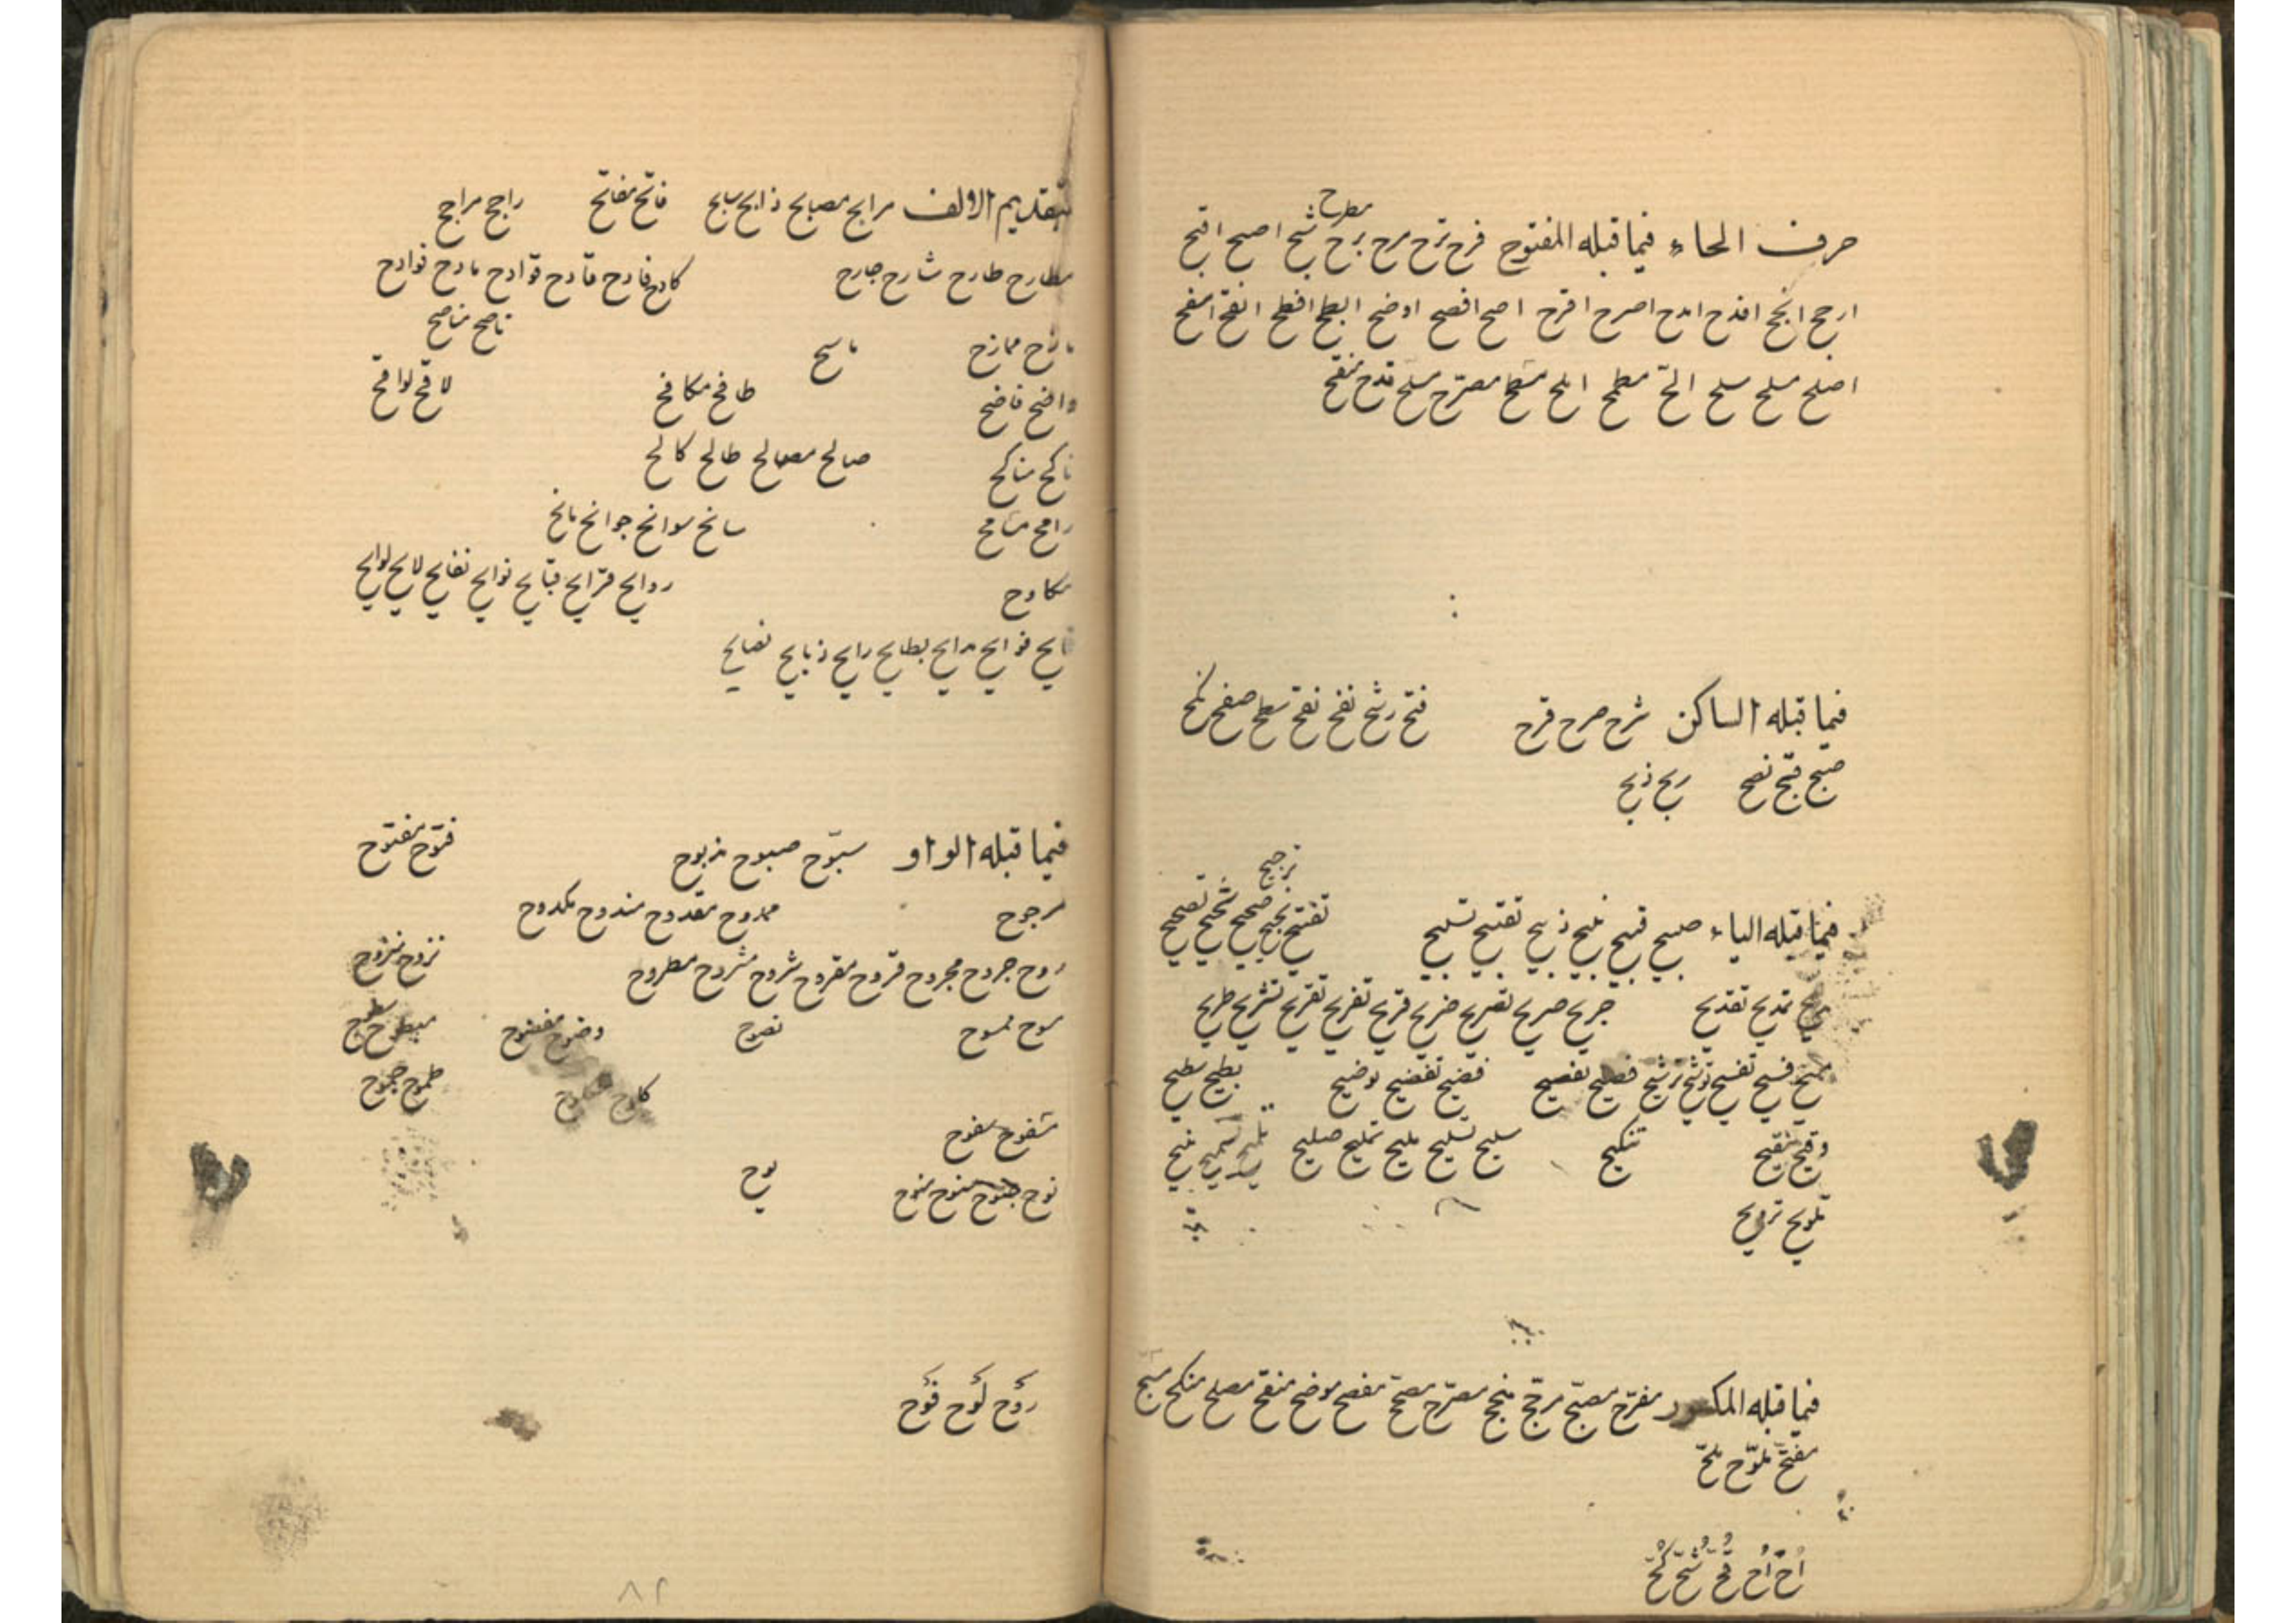 مطرح
حرف الحاء فيما قبله المفتوح فرح ترح مرح برح شبح اصبح اقبح
ارجح انجح اقدح امدح اصرح اقرح اصح افصح اوضح ابطح افطح انقح اسفح
اصلح ملح سلح الح مطمح املح مسطح مصرح مسلح قدح منقح
فيما قبله الساكن شرح صرح قرح فتح رشح نفح نقح سطح صفح كمح
صبح قبح نصح ربح ذبح
ترجيح
فيما قبله الياء صبيح قبيح ذبيح تقبيح تسبيح تفتيح صحيح شحيح تصحيح
مديح تمديح تقديح جريح صريح تصريح ضريح قريح تفريح تقريح تشريح طريح
فسيح تفسيح ترشيح فصيح تفصيح فضيح تفضيح توضيح بطيح سطيح
وقيح تنقيح تنكيح سليح تسليح مليح تمليح صليح
تلويح ترويح
فيما قبله المكسور مفرح مصبح مرجح منجح مصرح مصحح مفصح موضح منقح مصلح منكح مسبح
مفتح ملوح ملح
اح اح قح شح كح
بتقديم الالف مرابح مصابح ذابح سابح فاتح مفاتح راجح مراجح
مطارح طارح شارح جارح كادح فادح قادح قوادح مادح فوادح
مازح ممازح ماسح ناصح مناصح
واضح فاضح طافح مكافح لاقح لواقح
ناكح مناكح صالح مصالح طالح كالح
رامح مسامح سانح سوانح جوانح مانح
مكاوح روايح قرايح قبايح نوايح نفايح لايح لوايح
فايح فوايح مدايح بطايح رايح ذبايح نصايح
فيما قبله الواو سبوح صبوح مذبوح فتوح مفتوح
مرجوح ممدوح مقدوح مندوح مكدوح
روح جروح مجروح قروح مقروح شروح مشروح مطروح نزوح منزوح
سوح ممسوح نصوح وضوح مفضوح مبطوح سطوح
طموح جموح
سفوح مسفوح
نوح جنوح ممنوح منوح يوح
روح لوح فوح
٨٢